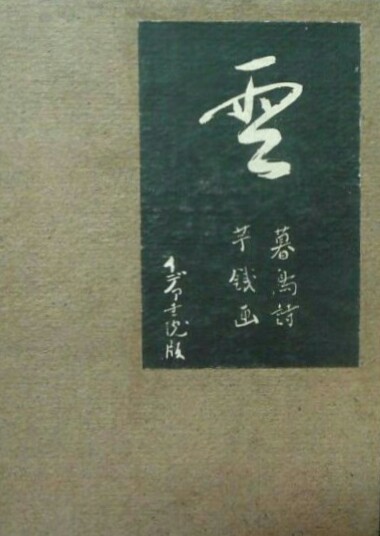 雲
暮鳥詩
芋銭画
イデア書院版